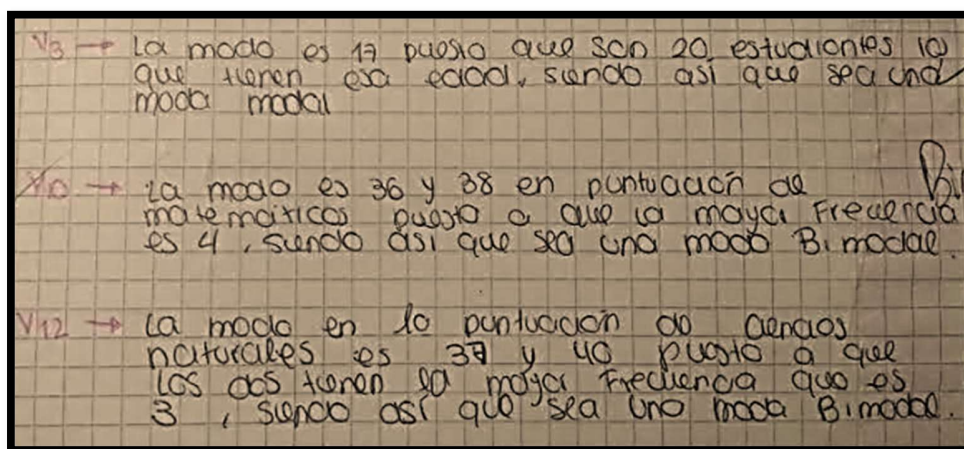 V3 → La moda es 17 puesto que son 20 estudiantes lo
que tienen esa edad, siendo así que sea una
moda modal
V10 → La moda es 36 y 38 en puntuación de
matemáticas puesto a que la mayor Frecuencia
es 4, siendo así que sea una moda Bimodal.
V12 → La moda en la puntuación de ciencias
naturales es 37 y 40 puesto a que
Los dos tienen la mayor Frecuencia que es
3, siendo así que sea una moda Bimodal.